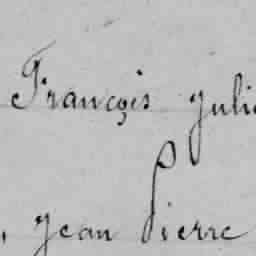 François Juli
, Jean Pierre